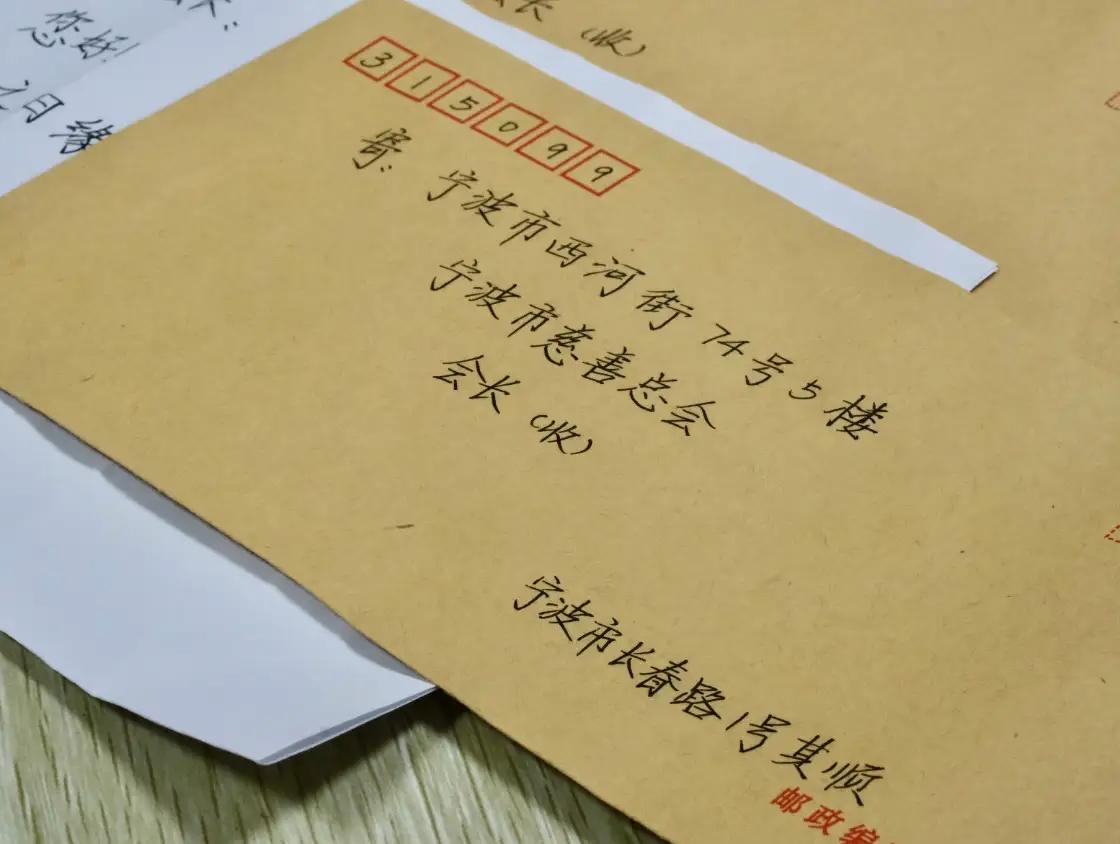 您好!
之日缘
长(收)
315099
寄:宁波市西河街74号5楼
宁波市慈善总会
会长(收)
宁波市长春路1号其顺
邮政编